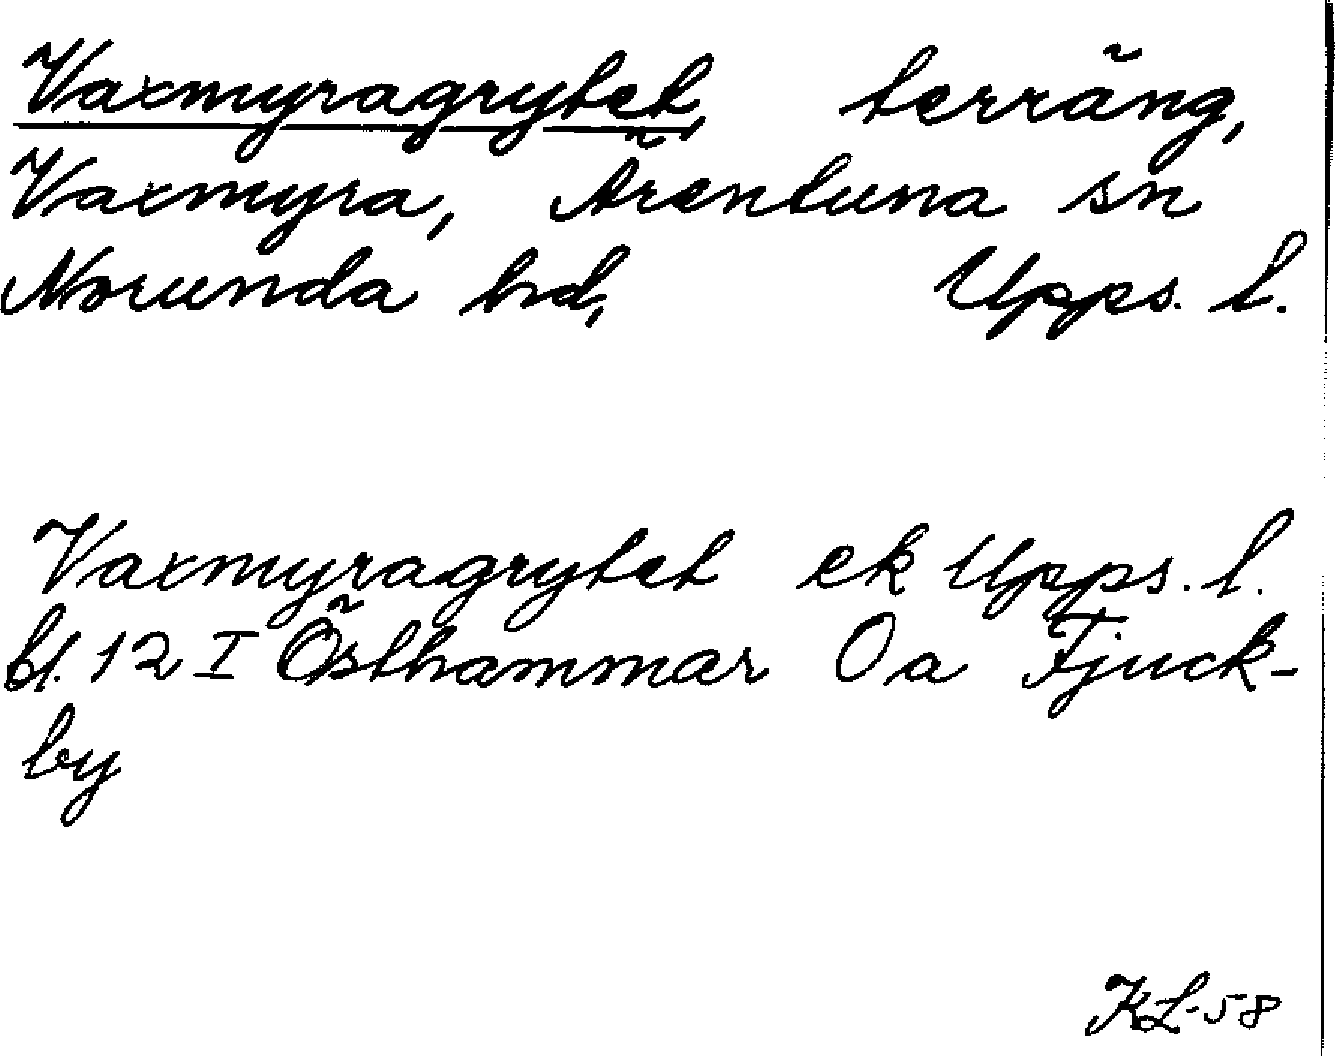 Vaxmyragrytet, terräng,
Vaxmyra, Ärentuna sn
Norunda hd, Upps. l.
Vaxmyragrytet ek Upps. l.
bl. 12 I Östhammar Oa Fjuck-
by
KL-58